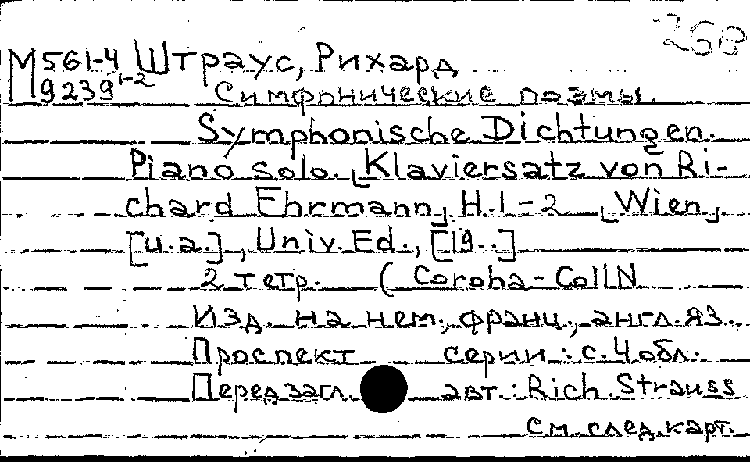 268
М561-4 Штраус, Рихард
9239 1-2 Симфонические поэмы.
Symphonische Dichtungen.
Piano solo. [Klaviersatz von Ri-
chard Ehrmann] H. 1-2 [Wien]
[u.a.], Univ. Ed., [19..]
2 тетр. (Corona-Coll N
Изд. на нем., франц., англ. яз.
Проспект серии: с. 4 обл.
Перед загл. авт.: Rich. Strauss
См. след. карт.